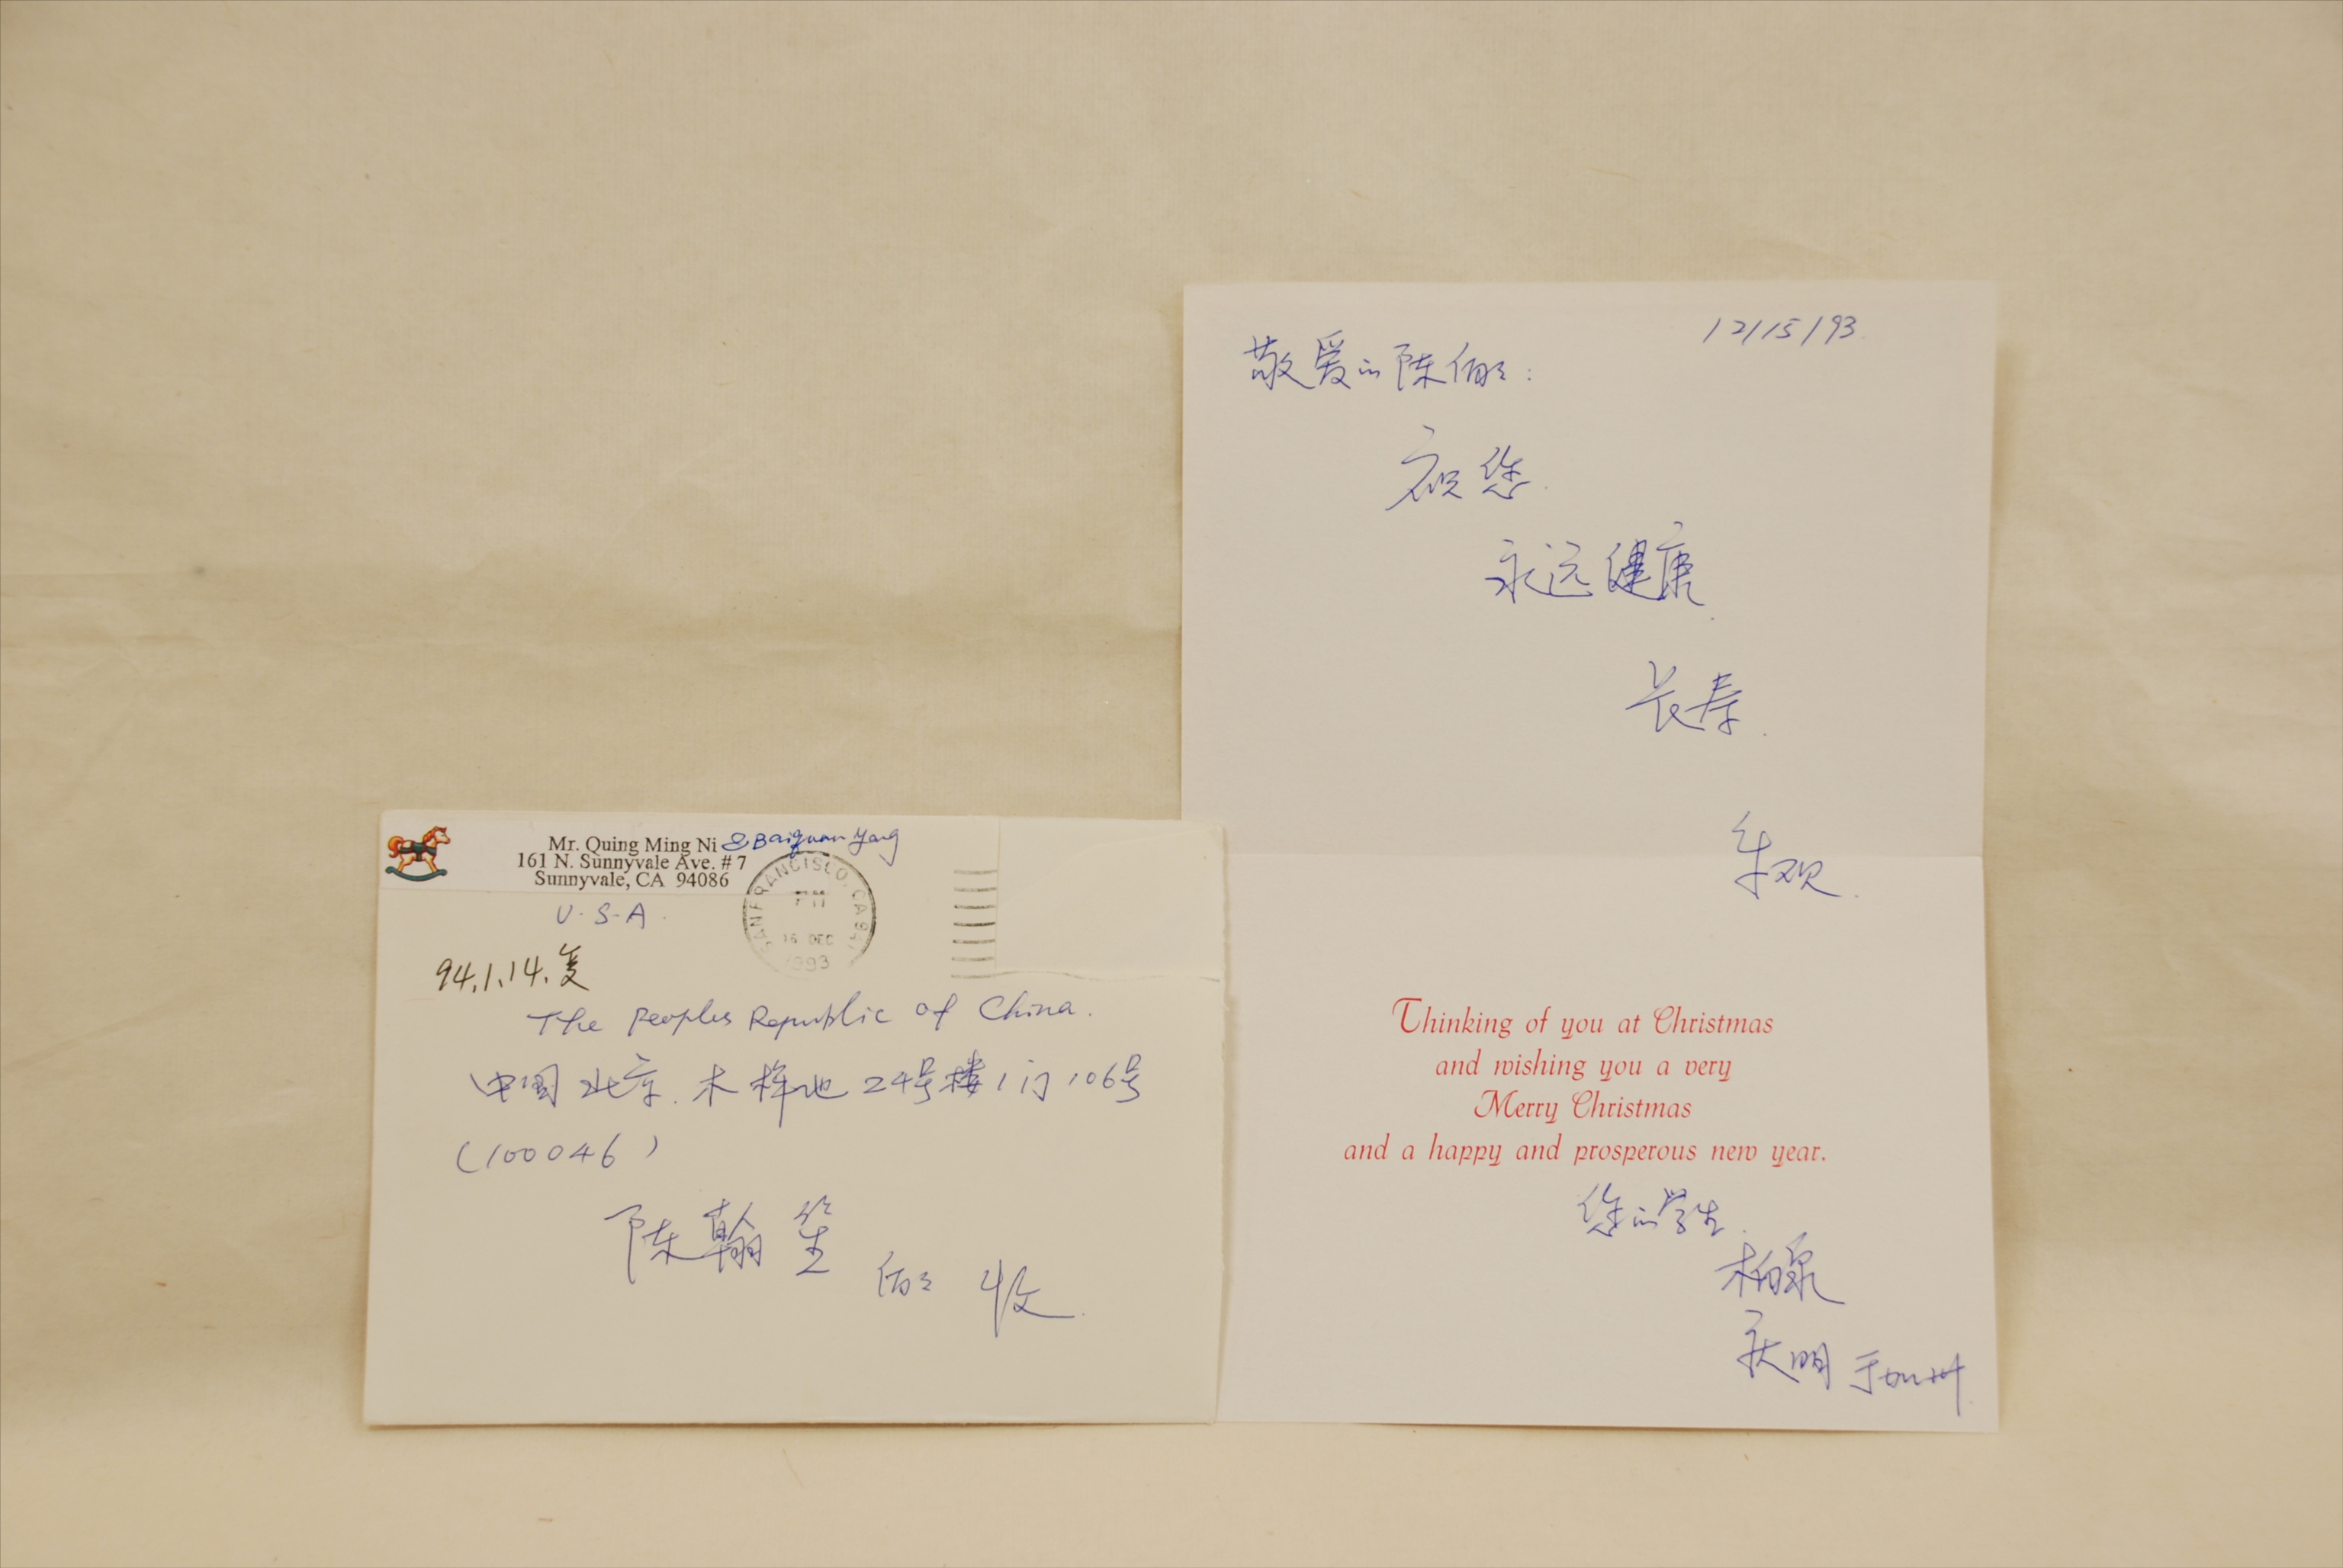 Mr. Quing Ming Ni & Baiquan Yang
161 N. Sunnyvale Ave. # 7
Sunnyvale, CA 94086
U.S.A.
SAN FRANCISCO, CA
PM
16 DEC
1993
94.1.14.复
The Peoples Republic of China.
中国北京.木樨地24号楼1门106号
(100046)
陈翰笙
伯伯 收
12/15/93
敬爱的陈伯伯:
祝您
永远健康
长寿
年欢
Thinking of you at Christmas
and wishing you a very
Merry Christmas
and a happy and prosperous new year.
您的学生
柏泉
庆明 于加州